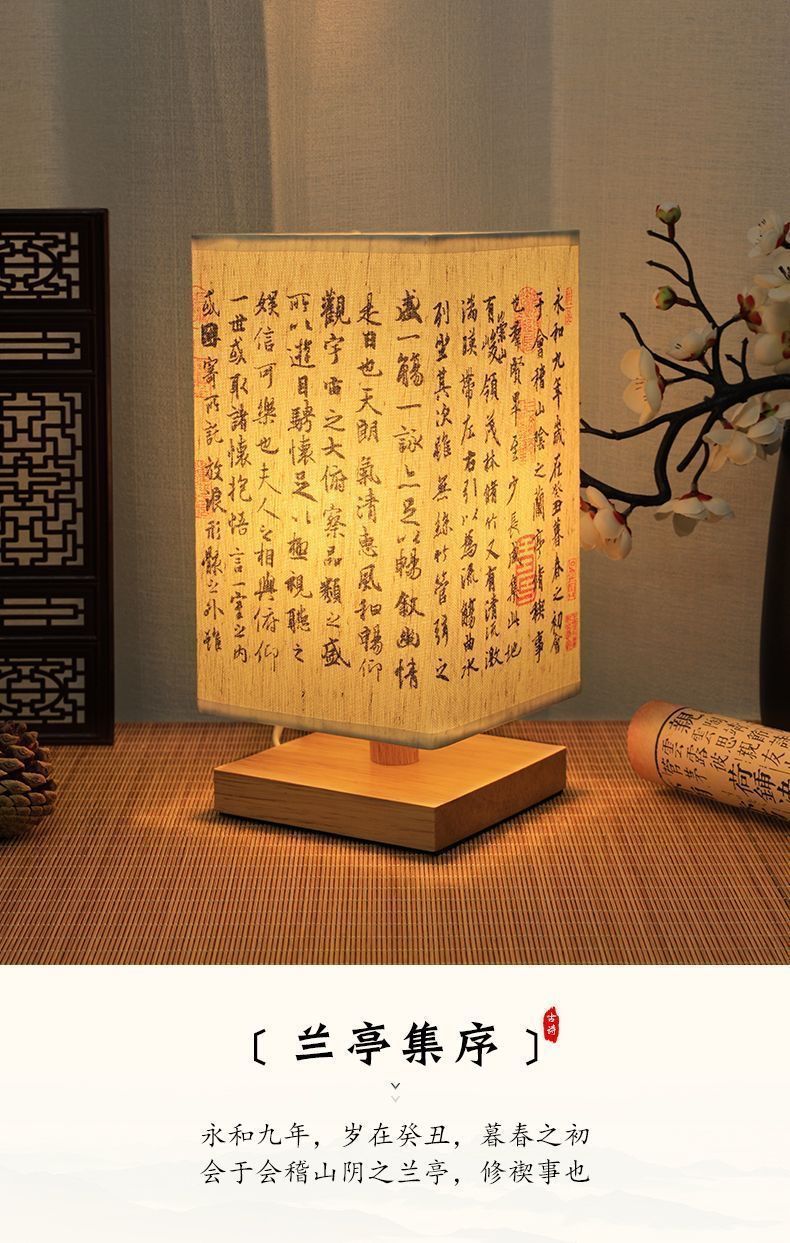 永和九年歲在癸丑暮春之初會
于會稽山陰之蘭亭脩稧事
也羣賢畢至少長咸集此地
有崇山峻領茂林脩竹又有清流激
湍暎帶左右引以為流觴曲水
列坐其次雖無絲竹管弦之
盛一觴一詠亦足以暢敘幽情
是日也天朗氣清惠風和暢仰
觀宇宙之大俯察品類之盛
所以遊目騁懷足以極視聽之
娛信可樂也夫人之相與俯仰
一世或取諸懷抱悟言一室之內
或因寄所託放浪形骸之外雖
〔 兰亭集序 〕
古诗
永和九年，岁在癸丑，暮春之初
会于会稽山阴之兰亭，修禊事也